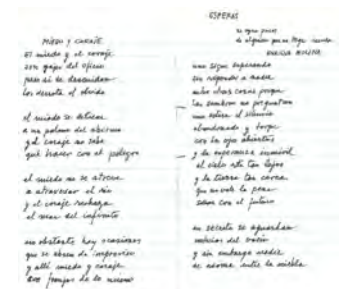 MIEDO Y CORAJE
el miedo y el coraje
son gajes del oficio
pero si se descuidan
los derrota el olvido
el miedo se detiene
a un palmo del abismo
y el coraje no sabe
qué hacer con el peligro
el miedo no se atreve
a atravesar el río
y el coraje rechaza
el mar del infinito
no obstante hay ocasiones
que se abren de improviso
y allí miedo y coraje
son franjas de lo mismo
ESPERAS
de alguien que no llega
uno sigue esperando
sin responder a nadie
entre otras cosas porque
las sombras no preguntan
uno estira el silencio
abandonado y torpe
con los ojos abiertos
y la esperanza inmóvil
el cielo está tan lejos
y la tierra tan cerca
que no vale la pena
soñar con el futuro
en secreto se aguardan
noticias del vacío
y sin embargo nadie
se asoma entre la niebla